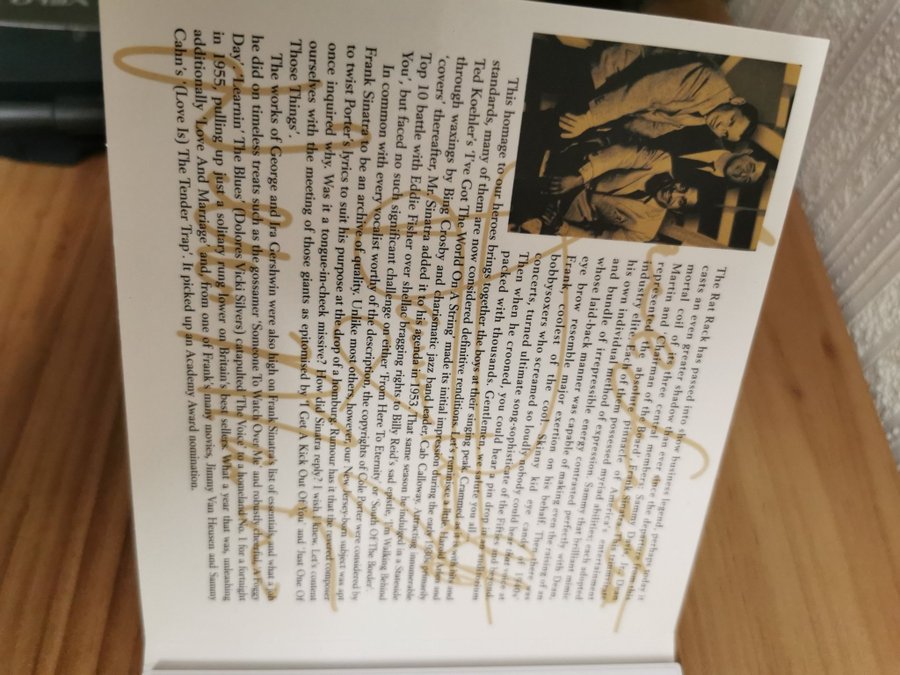 The Rat Rack has passed into show business legend, perhaps under it
casts an even greater shadow than ever since the departure from this
mortal coil of its three central members; Sammy Davis Jnr, Dean
Martin and Chairman of the Board', Frank Sinatra. This
represented the absolute pinnacle of America's entertainment
industry elite. Each of them possessed myriad abilities; each adopted
his own individual method of expression; Sammy that brilliant mimic
and bundle of irrepressible energy contrasted perfectly with Dean,
whose laid-back manner was capable of making even the raising of an
eye brow resemble major exertion on his behalf. Then there was
Frank, coolest of the cool. Skinny kid eye candy of
bobbysoxers who screamed so loudly nobody could hear him
concerts, turned ultimate song-sophisticate of the Fifties and beyond.
Then when he crooned, you could hear a pin drop in an auditorium
packed with thousands. Gentlemen, we salute you all.
This homage to our heroes brings together the boys at their singing peak. Crammed as it is with
standards, many of them are now considered definitive renditions. Let's reminisce a little. Harold Arlen and
Ted Koehler's 'I've Got The World On A String' made its initial impression during the early 1930s, primarily
through waxings by Bing Crosby and charismatic jazz band leader, Cab Calloway. Attracting innumerable
'covers' thereafter, Mr. Sinatra added it to his agenda in 1953. That same season he indulged in a Stateside
Top 10 battle with Eddie Fisher over shellac bragging rights to Billy Reid's sad epistle, 'I'm Walking Behind
You', but faced no such significant challenge on either 'From Here To Eternity' or 'South Of The Border'.
In common with every vocalist worthy of the description, the copyrights of Cole Porter were considered by
Frank Sinatra to be an archive of quality. Unlike most others, however, our New Jersey-born subject was apt
to twist Porter's lyrics to suit his purpose at the drop of a homburg. Rumour has it that the revered composer
once inquired why. Was it a tongue-in-cheek missive? How did Sinatra reply? I wish I knew. Let's content
ourselves with the meeting of those giants as epitomised by 'I Get A Kick Out Of You' and 'Just One Of
Those Things'.
The works of George and Ira Gershwin were also high on Frank Sinatra's list of essentials and what a job
he did on timeless treats such as the gossamer 'Someone To Watch Over Me' and robustly cheerful, 'A Foggy
Day'. 'Learnin' The Blues' (Dolores Vicki Silvers) catapulted 'The Voice' to a homeland No. 1 for a fortnight
in 1955, pulling up just a solitary rung lower on Britain's best sellers. What a year that was, unleashing
additionally 'Love And Marriage' and, from one of Frank's many movies, Jimmy Van Heusen and Sammy
Cahn's '(Love Is) The Tender Trap'. It picked up an Academy Award nomination.